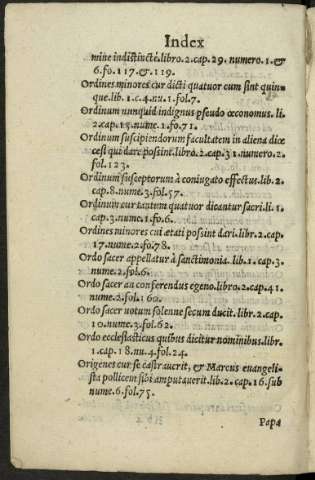 Index
mine indistinctè.libro.2.cap.29. numero.1.&
6.fo.117.&.119.
Ordines minores cur dicti quatuor cum sint quin-
que.lib.1.c.4.nu.1.fol.7.
Ordinum nunquid indignus pseudo œconomus.li.
2.cap.15.nume.1.fo.71.
Ordinum suscipiendorum facultatem in aliena diœ
cesi qui dare possint.libro.2.cap.31.numero.2.
fol.123.
Ordinum susceptorum à coniugato effectus.lib.2.
cap.8.nume.3.fol.57.
Ordinum cur tantum quatuor dicantur sacri.li.1.
cap.3.nume.1.fo.6.
Ordines minores cui etati possint dari.libr.2.cap.
17.nume.2.fo.78.
Ordo sacer appellatur à sanctimonia.lib.1.cap.3.
nume.2.fol.6.
Ordo sacer an conferendus egeno.libro.2.cap.41.
nume.2.fol.160.
Ordo sacer uotum solenne secum ducit.libr.2.cap.
10.nume.3.fol.62.
Ordo ecclesiasticus quibus dicitur nominibus.libr.
1.cap.18.nu.4.fol.24.
Origenes cur se castrauerit, & Marcus euangeli-
sta pollicem sibi amputauerit.lib.2.cap.16.sub
nume.6.fol.75.
Papa